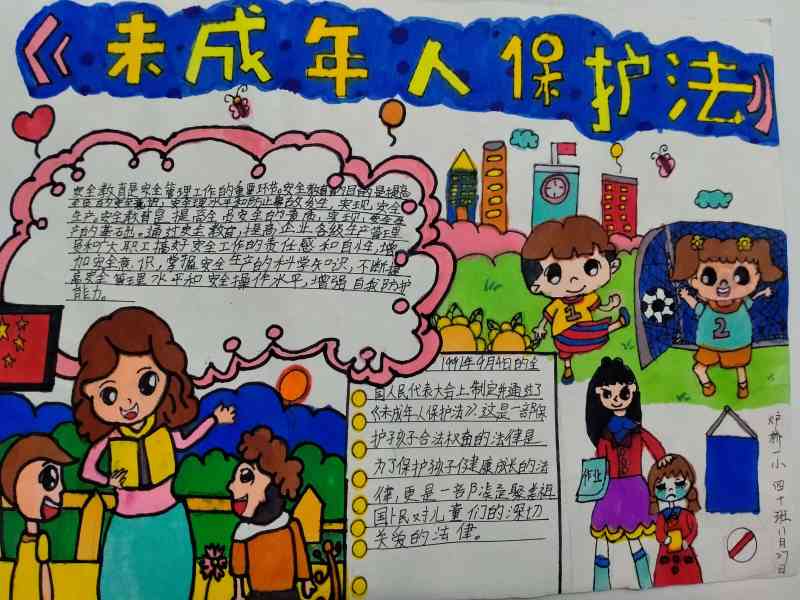 《未成年人保护法》
安全教育是安全管理工作的重要环节。安全教育的目的是提高
全员的安全素质,安全理水平和防止事故发生,实现安全
生产。安全教育是提高全员安全的素质,实现安全生
产的基础。通过安全教育,提高企业各级生产管理
员和广大职工搞好安全工作的责任感和自性,增
加安全意识,掌握安全生产的科学知识,不断提
高安全管理水平和安全操作水平,增强自我防护
能力。
1991年9月4日的全
国人民代表大会上制定并通过了
《未成年人保护法》,这是一部保
护孩子合法权益的法律是
为了保护孩子们健康成长的法
律,更是一部凝聚祖
国人民对儿童们的深切
关爱的法律。
1
2
作业
炉桥一小 四十班 11月27日